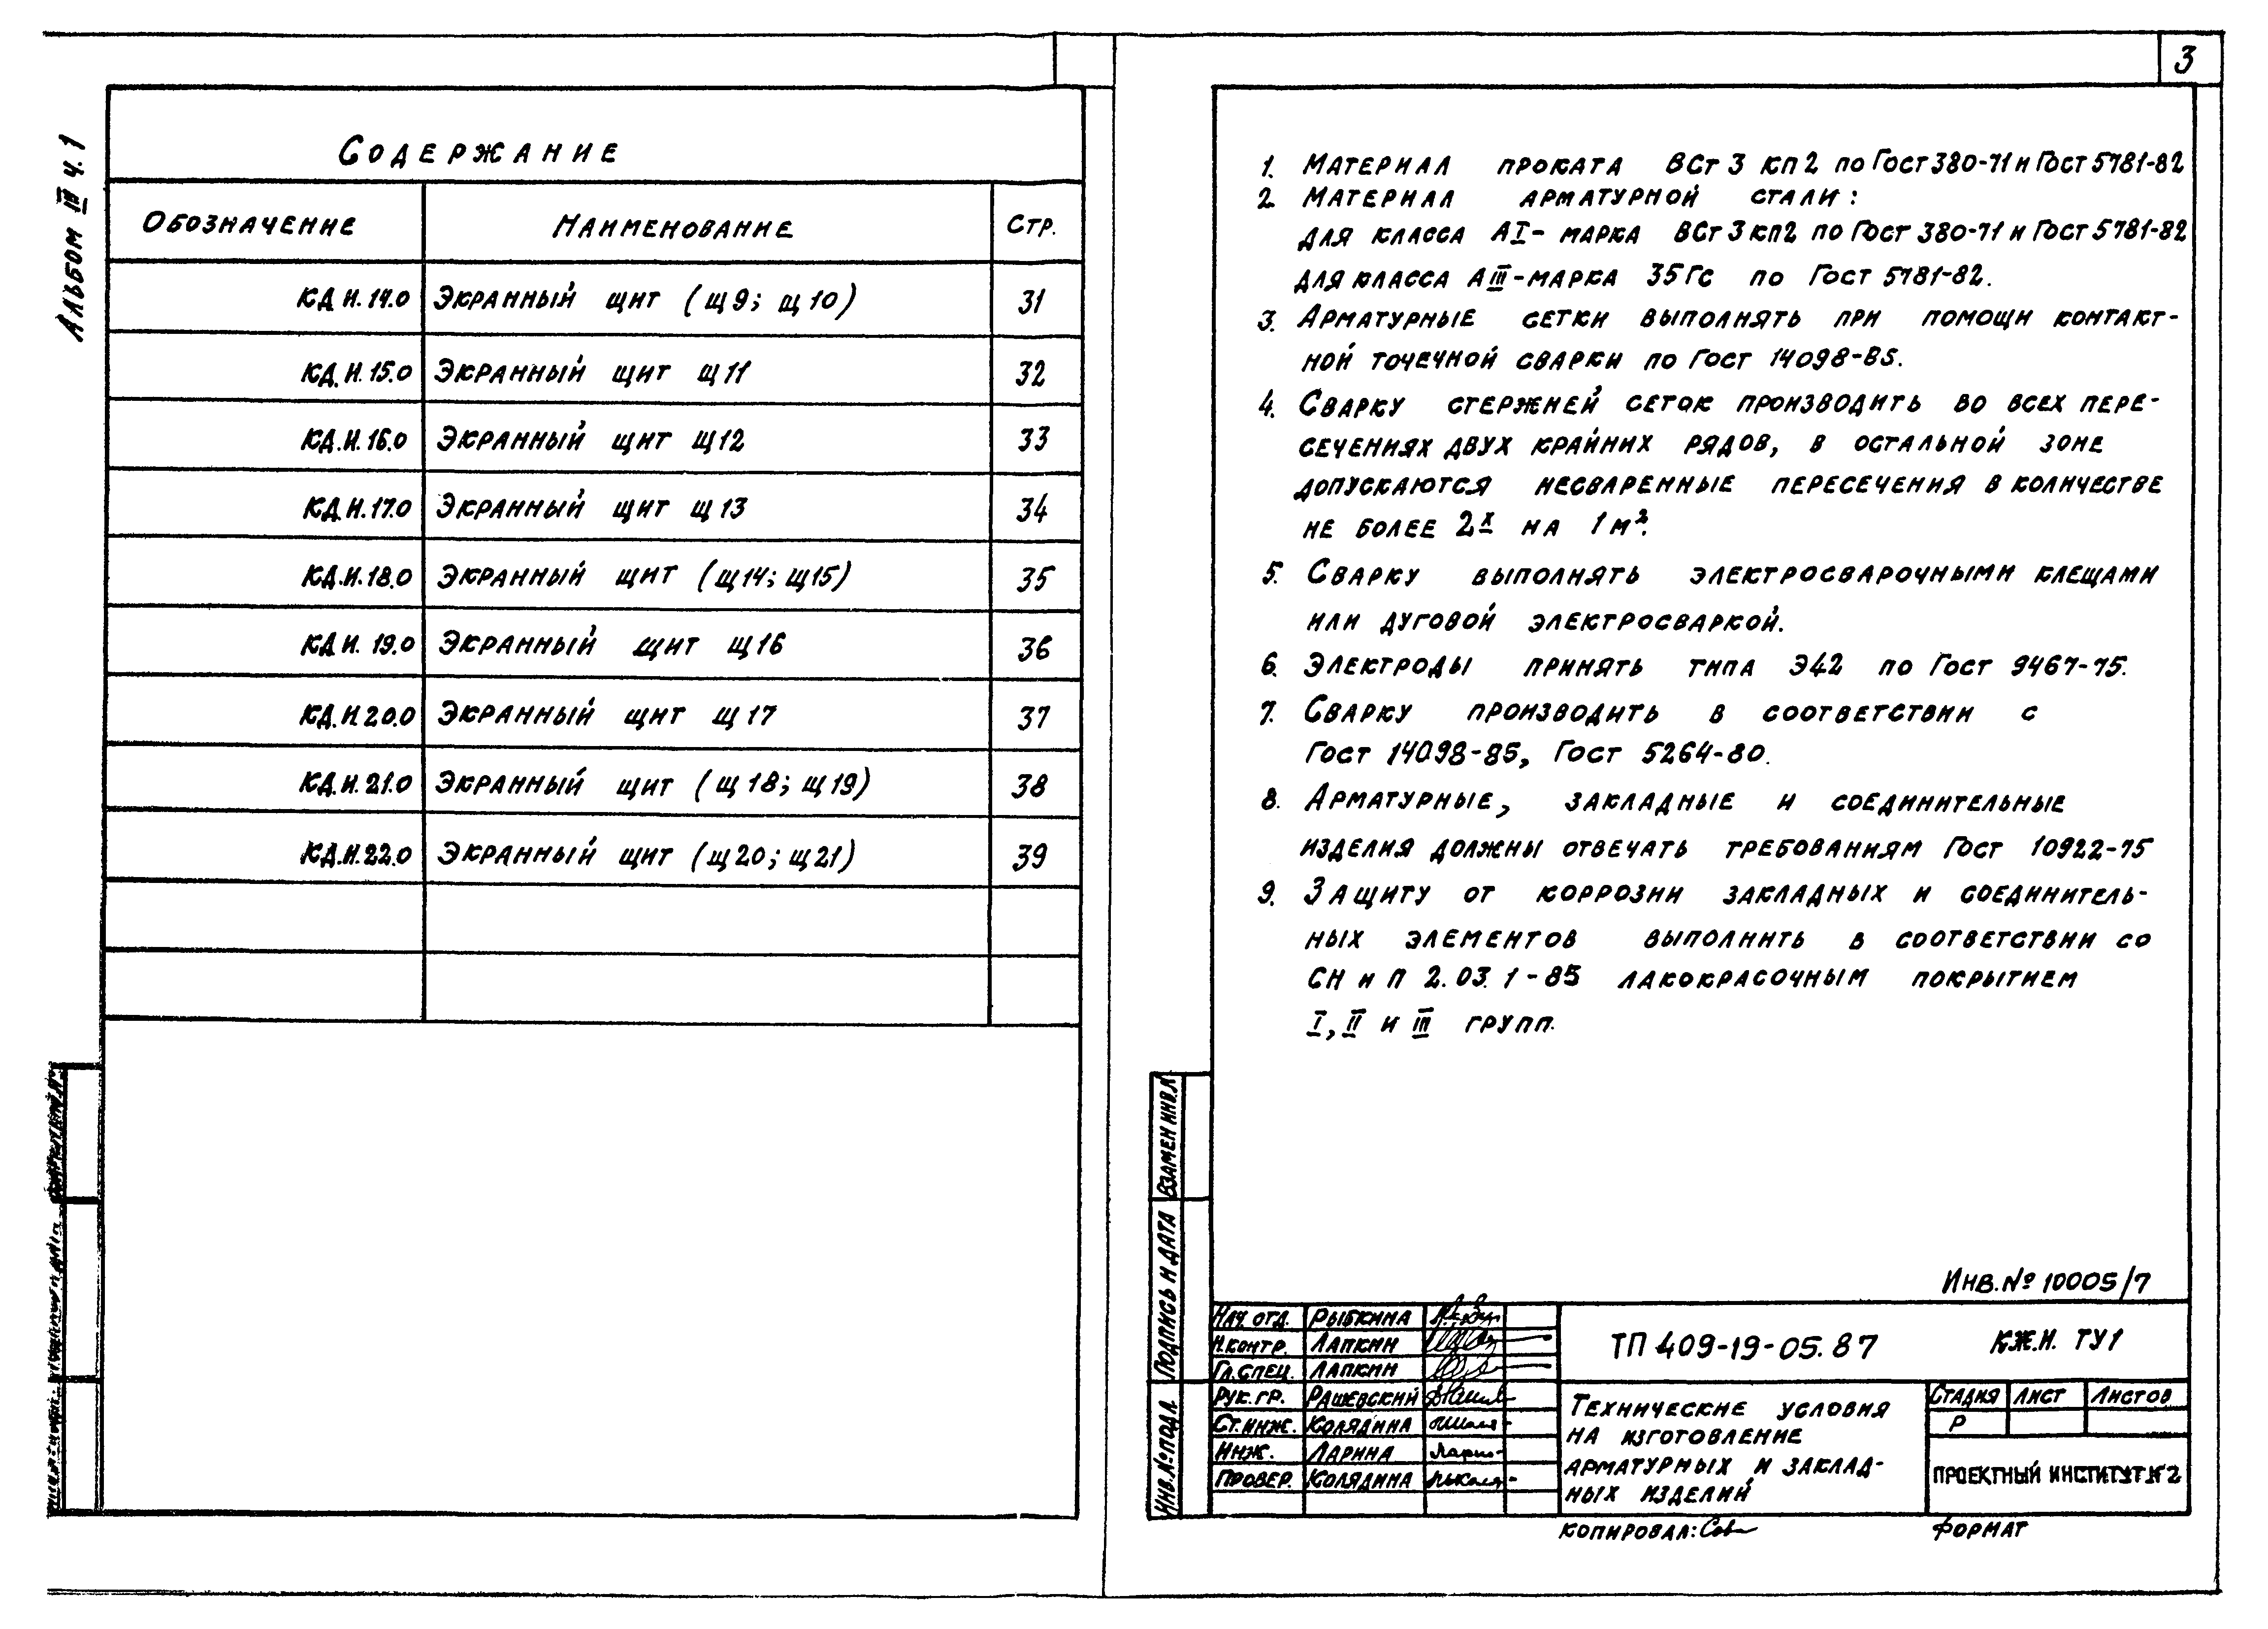 3
Альбом III ч. 1
Содержание
Обозначение Наименование Стр.
КД.И.14.0 Экранный щит (щ9; щ10) 31
КД.И.15.0 Экранный щит щ11 32
КД.И.16.0 Экранный щит щ12 33
КД.И.17.0 Экранный щит щ13 34
КД.И.18.0 Экранный щит (щ14; щ15) 35
КД.И.19.0 Экранный щит щ16 36
КД.И.20.0 Экранный щит щ17 37
КД.И.21.0 Экранный щит (щ18; щ19) 38
КД.И.22.0 Экранный щит (щ20; щ21) 39
1. Материал проката ВСт 3 кп 2 по Гост 380-71 и Гост 5781-82
2. Материал арматурной стали:
для класса АI- марка ВСт 3 кп2 по Гост 380-71 и Гост 5781-82
для класса АIII-марка 35Гс по Гост 5781-82.
3. Арматурные сетки выполнять при помощи контакт-
ной точечной сварки по Гост 14098-85.
4. Сварку стержней сеток производить во всех пере-
сечениях двух крайних рядов, в остальной зоне
допускаются несваренные пересечения в количестве
не более 2х на 1 м².
5. Сварку выполнять электросварочными клещами
или дуговой электросваркой.
6. Электроды принять типа Э42 по Гост 9467-75.
7. Сварку производить в соответствии с
Гост 14098-85, Гост 5264-80.
8. Арматурные, закладные и соединительные
изделия должны отвечать требованиям Гост 10922-75
9. Защиту от коррозии закладных и соединитель-
ных элементов выполнить в соответствии со
СН и П 2.03.1-85 лакокрасочным покрытием
I, II и III групп.
Взамен инв.№
Подпись и дата
Инв.№подл.
Инв.№ 10005/7
Нач. отд. Рыбкина
Н.контр. Лапкин
Гл.спец. Лапкин
Рук.гр. Рашевский
Ст.инж. Колядина
Инж. Ларина
Провер. Колядина
ТП 409-19-05.87 КЖ.И. ТУ1
Технические условия
на изготовление
арматурных и заклад-
ных изделий
Стадия Лист Листов
Р
Проектный институт №2
Копировал: Формат